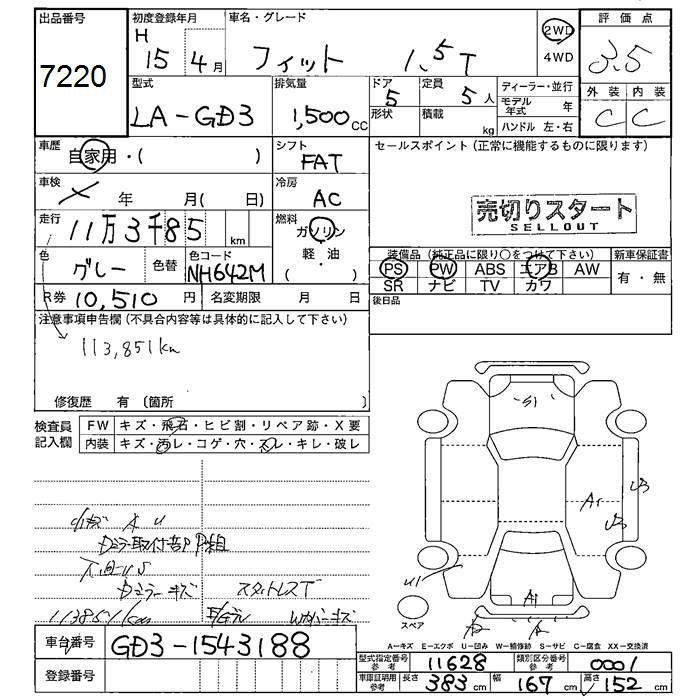 出品番号
7220
初度登録年月
H
15年4月
車名・グレード
フィット 1.5T
2WD
4WD
評価点
3.5
外装 内装
C C
型式
LA-GD3
排気量
1,500cc
ドア
5
形状
定員
5人
積載
kg
ディーラー・並行
モデル年式 年
ハンドル 左・右
車歴
自家用・( )
シフト
FAT
セールスポイント(正常に機能するものに限ります)
車検
× 年 月( 日)
冷房
AC
売切りスタート
SELLOUT
走行
11万3千85 km
燃料
ガソリン
軽・油
( )
色
グレー
色替
色コード
NH642M
装備品(純正品に限り〇をつけて下さい)
PS PW ABS エアB AW
SR ナビ TV カワ
新車保証書
有・無
R券 10,510円
名変期限 月 日
後日品
注意事項申告欄(不具合内容等は具体的に記入して下さい)
113,851km
修復歴 有 〔箇所 〕
検査員記入欄
FW キズ・飛石・ヒビ割・リペア跡・X要
内装 キズ・汚レ・コゲ・穴・スレ・キレ・破レ
小キズ A U
Dミラー取付部PP組
Dミラーキズ
スタットレスT
113851km
S1
A1
U3
U3
U1
A1
スペア
A=キズ E=エクボ U=凹み W=補修跡 S=サビ C=腐食 XX=交換済
車台番号 GD3-1543188
登録番号
型式指定番号 参考 11628
類別区分番号 参考 0001
車庫証明用 参考 長さ 383cm 幅 167cm 高さ 152cm